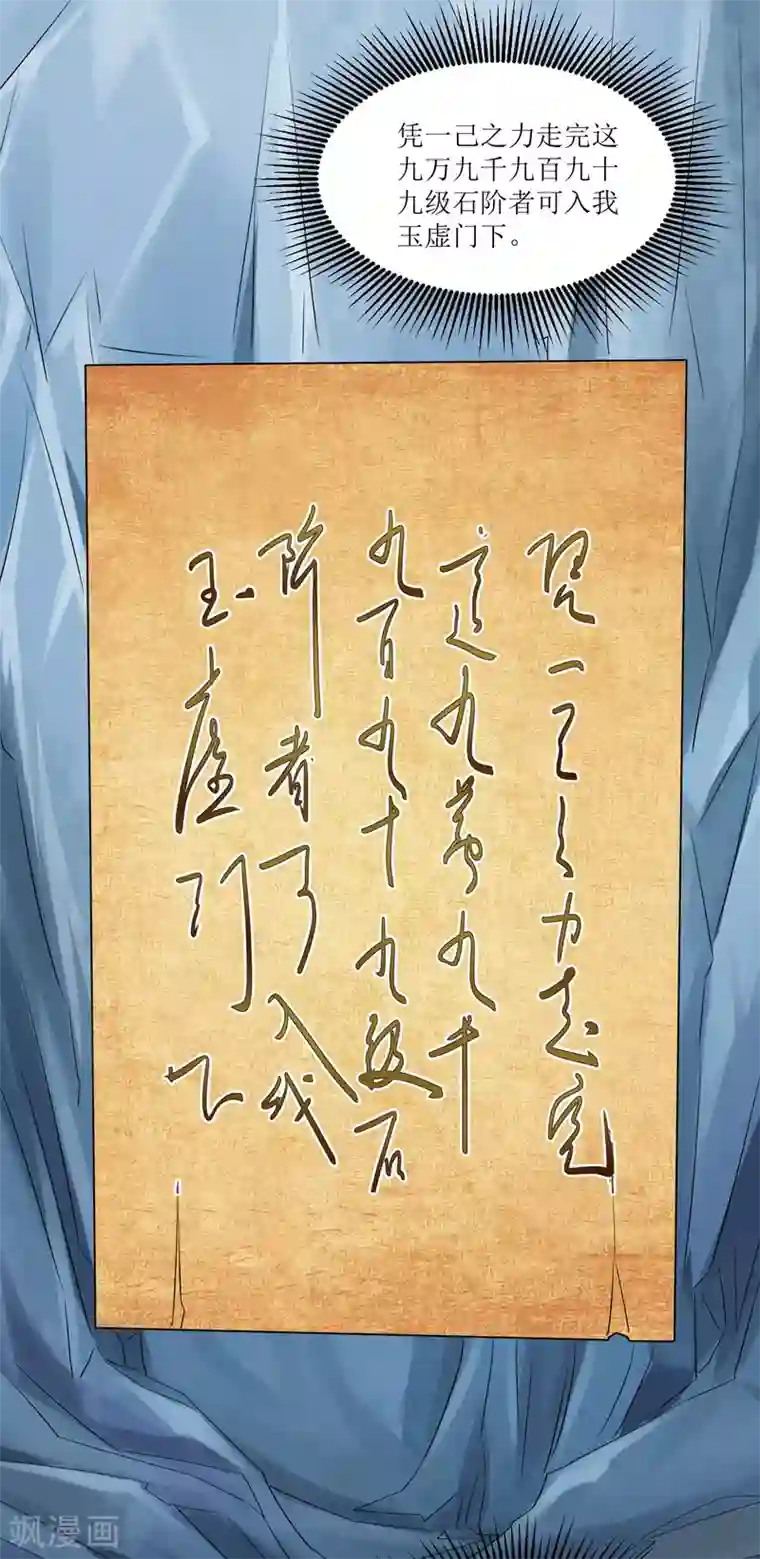 凭一己之力走完这
九万九千九百九十
九级石阶者可入我
玉虚门下。
凭一己之力走完
这九萬九千
九百九十九级石
阶者可入我
玉虚门下
飒漫画